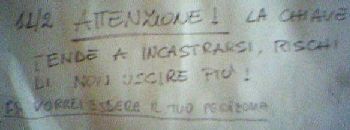 11/2 ATTENZIONE! LA CHIAVE
TENDE A INCASTRARSI, RISCHI
DI NON USCIRE PIU'!
ES VORREI ESSERE IL TUO PERIZOMA